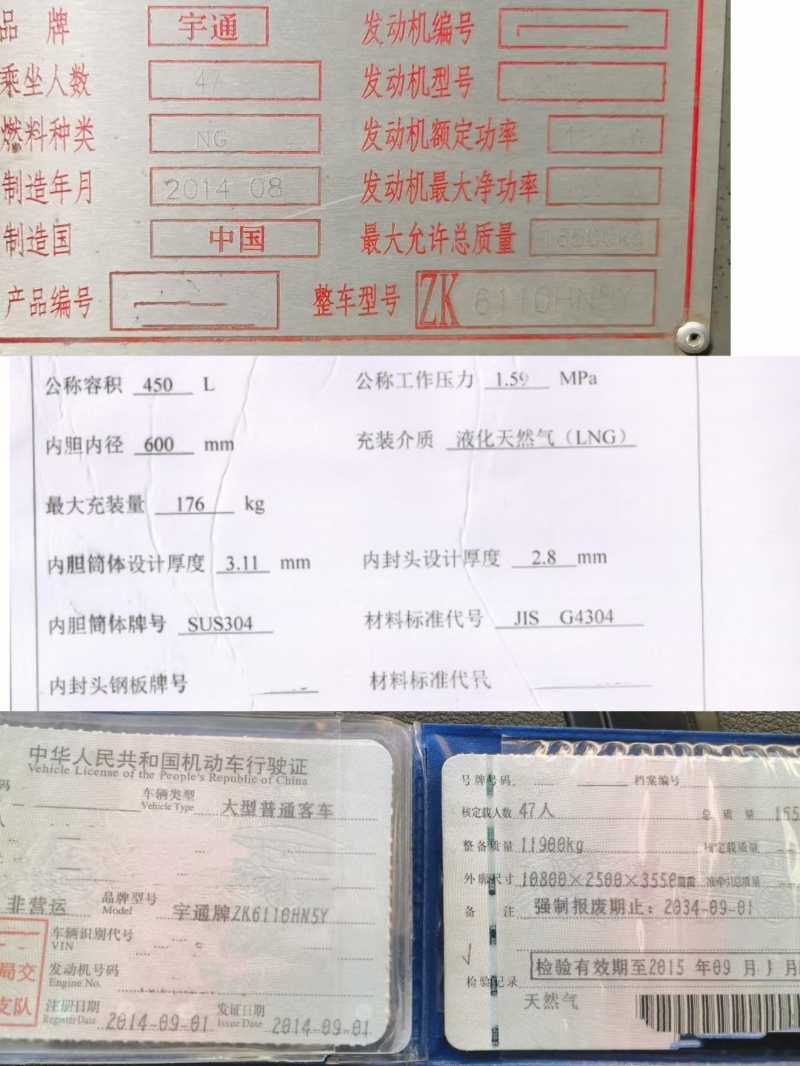 品 牌 宇通 发动机编号
乘坐人数 47 发动机型号
燃料种类 NG 发动机额定功率
制造年月 2014 08 发动机最大净功率
制造国 中国 最大允许总质量 15500kg
产品编号 整车型号 ZK 6110HN5Y
公称容积 450 L 公称工作压力 1.59 MPa
内胆内径 600 mm 充装介质 液化天然气（LNG）
最大充装量 176 kg
内胆筒体设计厚度 3.11 mm 内封头设计厚度 2.8 mm
内胆筒体牌号 SUS304 材料标准代号 JIS G4304
内封头钢板牌号 材料标准代号
中华人民共和国机动车行驶证
Vehicle License of the People's Republic of China
码 车辆类型 大型普通客车
Vehicle Type
人
非营运 品牌型号 宇通牌ZK6110HN5Y
Model
车辆识别代号
VIN
局交 发动机号码
Engine No.
支队 注册日期 2014-09-01 发证日期 2014-09-01
Register Date Issue Date
号牌号码 档案编号
核定载人数 47人 总质量 155
整备质量 11900kg 核定载质量
外廓尺寸 10800×2500×3550mm 准牵引总质量
备 注 强制报废期止：2034-09-01
检验有效期至2015 年09 月
检验记录
天然气